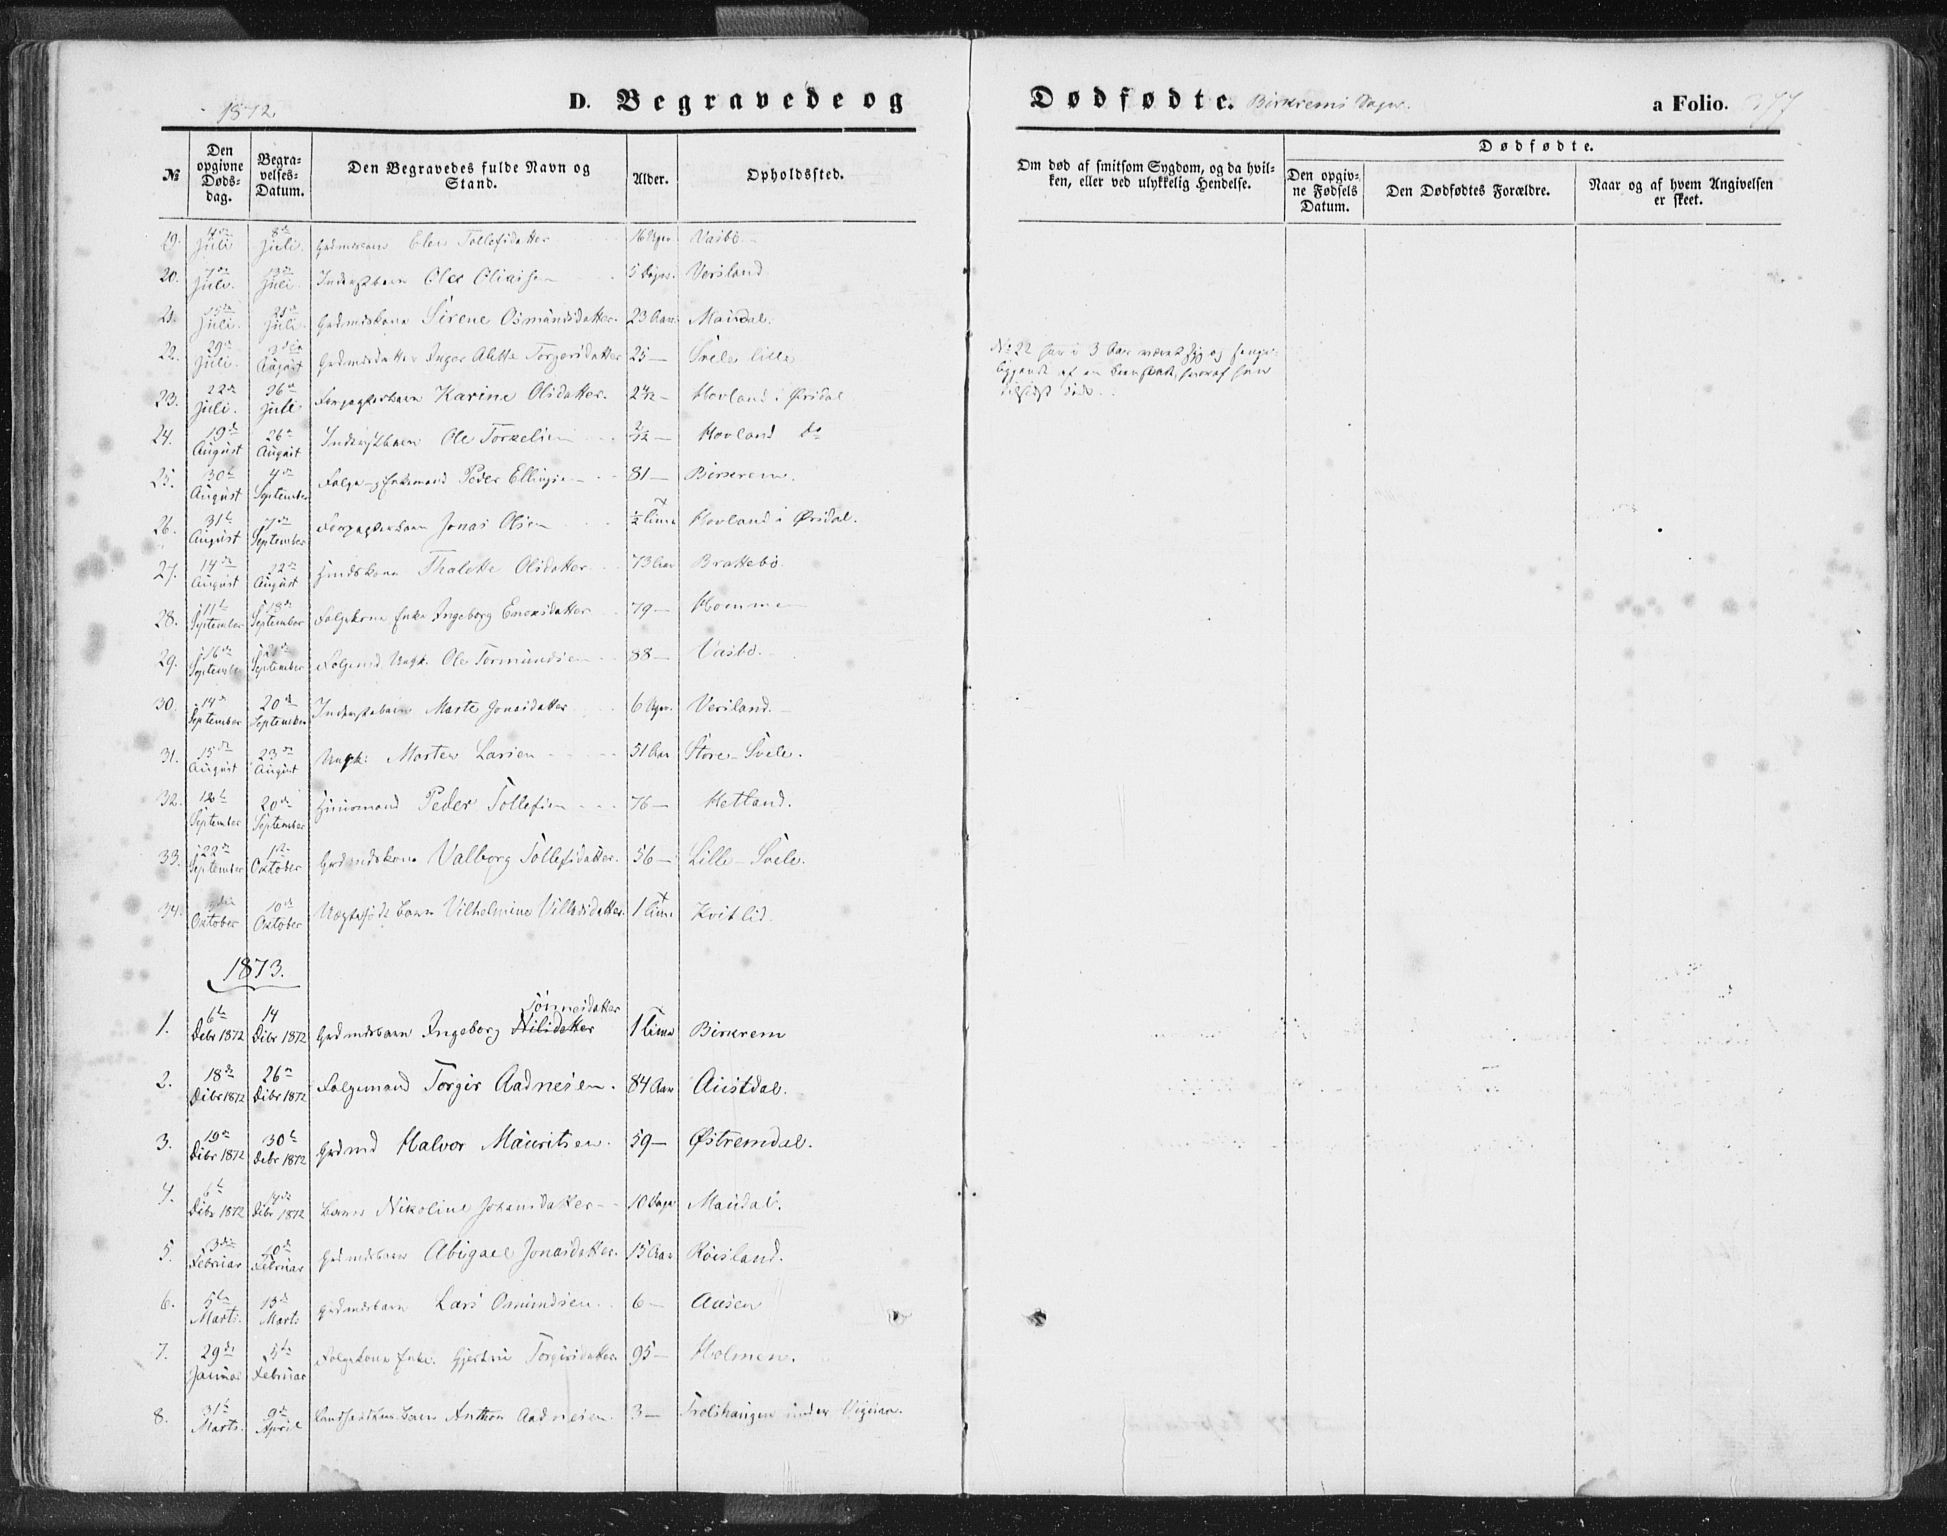 1872.
D. Begravede og Dødfødte. Birkrems Sogn. a Folio. 377
№ Den opgivne Døds-dag. Begra-velses-Datum. Den Begravedes fulde Navn og Stand. Alder. Opholdssted.
Om død af smitsom Sygdom, og da hvil-ken, eller ved ulykkelig Hendelse. Dødfødte. Den opgiv-ne Fødsels Datum. Den Dødfødtes Forældre. Naar og af hvem Angivelsen er skeet.
19. 4de Juli 8de Juli Grdmdsbarn Elen Tollefsdatter 16 Uger Vasbö
20. 7de Juli Juli Inderstbarn Ole Oliaisen 5 Dage Versland
21. 15de Juli 21de Juli Grdmdskone Sirene Osmundsdatter. 23 Aar Maudal.
22. 29de Juli August Grdmdsdatter Inger Alette Torgersdatter 25 — Svele lille
№ 22 har i 3 Aar været syg og senge-
liggende af en Beenskade, hvoraf hun
tilsidst døde.
23. 22de Juli. 26de Juli Forpagterbarn Karine Olsdatter. 2 — Hovland i Ørsdal
24. 19de August 26de August Inderstbarn Ole Torkelsen 2/12 — Hovland do
25. 30te August 4de September Folge- og Enkemand Peder Ellingsen 81 — Birkrem.
26. 31te August 7de September Forpagterbarn Jonas Olsen 1/2 Time Hovland i Ørsdal.
27. 14de August 22de August Husmdskone Thalette Olsdatter 73 Aar Brattebö
28. 11te September 18de September Folgekone Enke Ingeborg Enersdatter 79 — Homme
29. 16de September 21de September Folgemd Ungk. Ole Tormundsen 88 — Vasbö.
30. 14de September 20de September Inderstebarn Marte Jonasdatter 6 Uger. Versland.
31. 15de August 23de August Ungk: Morten Larsen 51 Aar Store-Svele.
32. 12te September 20de September Huusmand Peder Tollefsen 76 — Hetland.
33. 22de September 1ste October Grdmdskone Valborg Tollefsdatter. 56 — Lille-Svele.
34. 3die October 10de October Uægtefödt Barn Vilhelmine Villadsdatter 1 Time Kvitlid.
1873.
Tönnesdatter
1. 6te Debr 1872 14 Debr 1872 Grdmdsbarn Ingeborg Nilsdatter 1 Time Birkrem
2. 18de Debr 1872 26de Debr 1872 Folgemand Torger Aadnesen. 84 Aar Austdal.
3. 19de Debr 1872 30te Debr 1872 Grdmd Halvor Mauritsen. 59 — Østremdal.
4. 6te Debr 1872 14de Debr 1872 Barn Nikoline Johansdatter 10 Dage Maudal.
5. 3die Februar 10de Februar Grdmdsbarn Abigael Jonasdatter. 15 Aar Röisland.
6. 5te Marts 13de Marts Grdmdsbarn Lars Osmundsen. 6 — Aasen
7. 29de Januar 5te Februar Folgekone Enke. Gjertrui Torgersdatter. 95 — Holmen.
8. 31te Marts. 9de April Barn Anthon Aadnesen. 3 — Trolshaugen under Vigesaa.